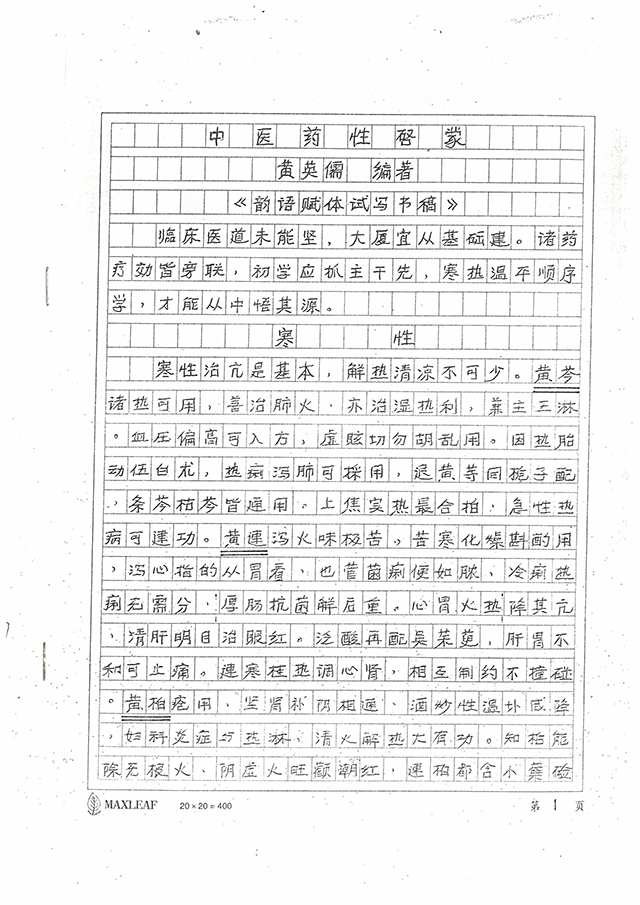 中医药性啓蒙
黄英儒 编著
《韵语赋体试写书稿》
临床医道未能坚，大厦宜从基础建。诸药
疗效皆旁联，初学应抓主干先，寒热温平顺序
学，才能从中悟其源。
寒 性
寒性治亢是基本，解热清凉不可少。黄芩
诸热可用，善治肺火、亦治湿热利，兼主三淋
。血压偏高可入方，虚眩切勿胡乱用。因热胎
动伍白术，热痢泻肺可採用，退黄等同栀子配
，条芩枯芩皆通用。上焦实热最合拍，急性热
病可建功。黄連泻火味极苦，苦寒化燥斟酌用
，泻心指的从胃看，也管菌痢便如脓，冷痢热
痢无需分，厚肠抗菌解后重。心胃火热降其亢
，清肝明目治眼红。泛酸再配吴茱萸，肝胃不
和可止痛。連寒桂热调心肾，相互制约不撞碰
。黄柏 用，坚肾补阴相通、酒炒性温
，妇科炎症与热淋、清火解热大有功。知柏能
除无根火、阴虚火旺颧潮红，連柏都含小蘗
MAXLEAF 20×20=400 第 1 页